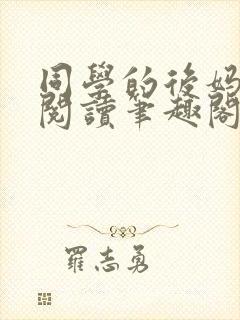 同學的後媽
閱讀筆趣閣
羅志勇